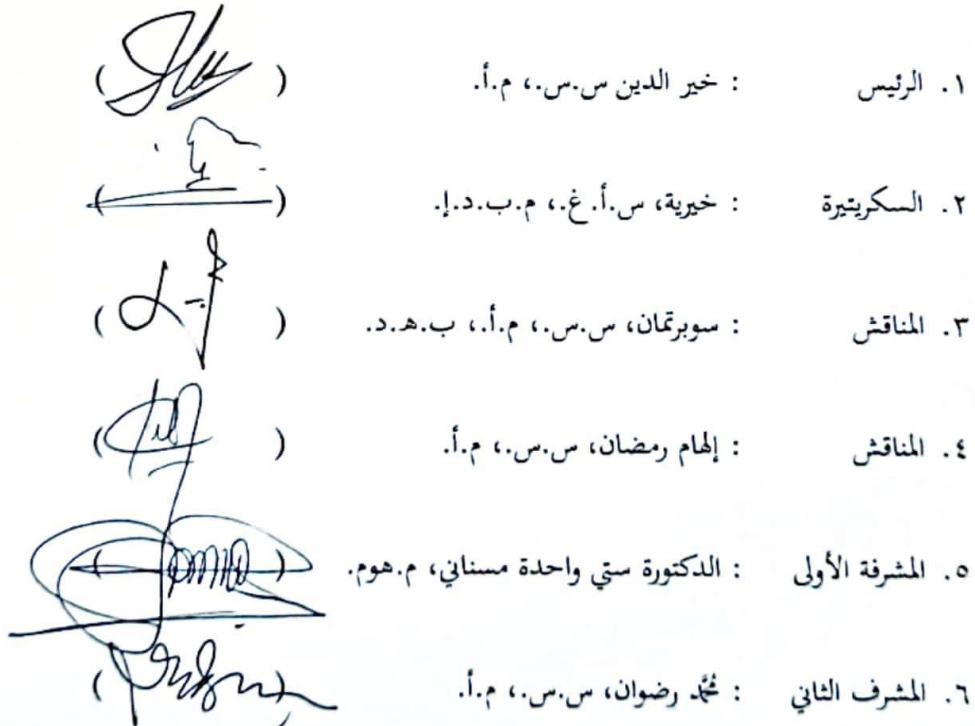 ١. الرئيس : خير الدين س.س.، م.أ. ( )
٢. السكريتيرة : خيرية، س.أ.غ.، م.ب.د.إ. ( )
٣. المناقش : سوبرتمان، س.س.، م.أ.، ب.ه.د. ( )
٤. المناقش : إلهام رمضان، س.س.، م.أ. ( )
٥. المشرفة الأولى : الدكتورة ستي واحدة مسناني، م.هوم. ( )
٦. المشرف الثاني : محمد رضوان، س.س.، م.أ. ( )